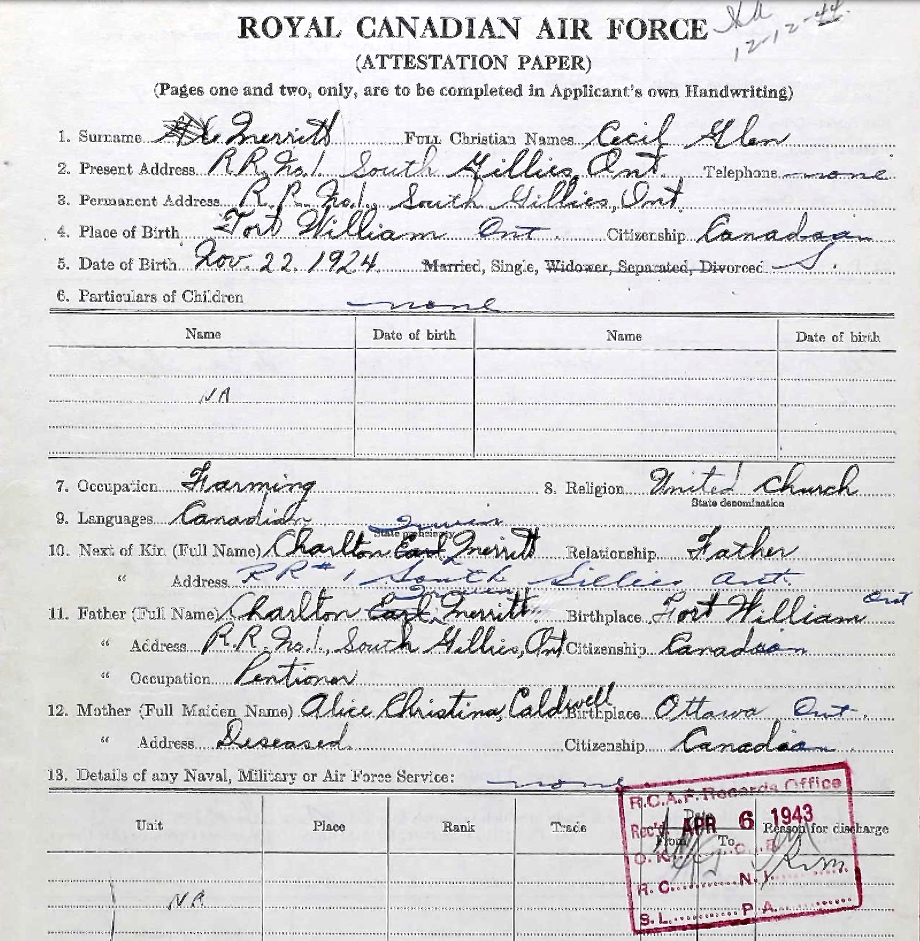 ROYAL CANADIAN AIR FORCE
12-12-44
(ATTESTATION PAPER)
(Pages one and two, only, are to be completed in Applicant's own Handwriting)
1. Surname Merritt Full Christian Names Cecil Glen
2. Present Address R.R. No. 1 South Gillies, Ont. Telephone none
3. Permanent Address R.R. No. 1, South Gillies, Ont.
4. Place of Birth Fort William Ont. Citizenship Canadian
5. Date of Birth Nov. 22, 1924 Married, Single, Widower, Separated, Divorced S.
6. Particulars of Children none
Name Date of birth Name Date of birth
NA
7. Occupation Farming 8. Religion United Church
State denomination
9. Languages Canadian
State proficiency
Irwin
10. Next of Kin (Full Name) Charlton Earl Merritt Relationship Father
" Address RR# 1 South Gillies Ont.
Irwin
11. Father (Full Name) Charlton Earl Merritt Birthplace Fort William Ont
" Address R.R. No. 1, South Gillies, Ont Citizenship Canadian
" Occupation Pentioner
12. Mother (Full Maiden Name) Alice Christina Caldwell Birthplace Ottawa Ont.
" Address Deseased Citizenship Canadian
13. Details of any Naval, Military or Air Force Service: none
R.C.A.F. Records Office
Unit Place Rank Trade From To Reason for discharge
Rec'd. APR 6 1943
O.K.
R.C. N.I.
S.L. P.A.
NA